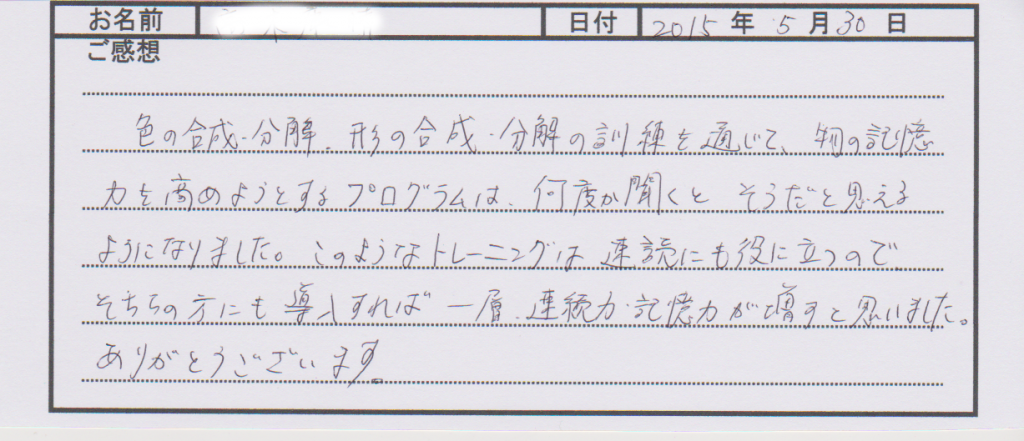 お名前 日付 2015年5月30日
ご感想
色の合成・分解、形の合成・分解の訓練を通じて、物の記憶
力を高めようとするプログラムは、何度か聞くと そうだと思える
ようになりました。このようなトレーニングは 速読にも役に立つので
そちらの方にも導入すれば 一層、連続力・記憶力が増すと思いました。
ありがとうございます。